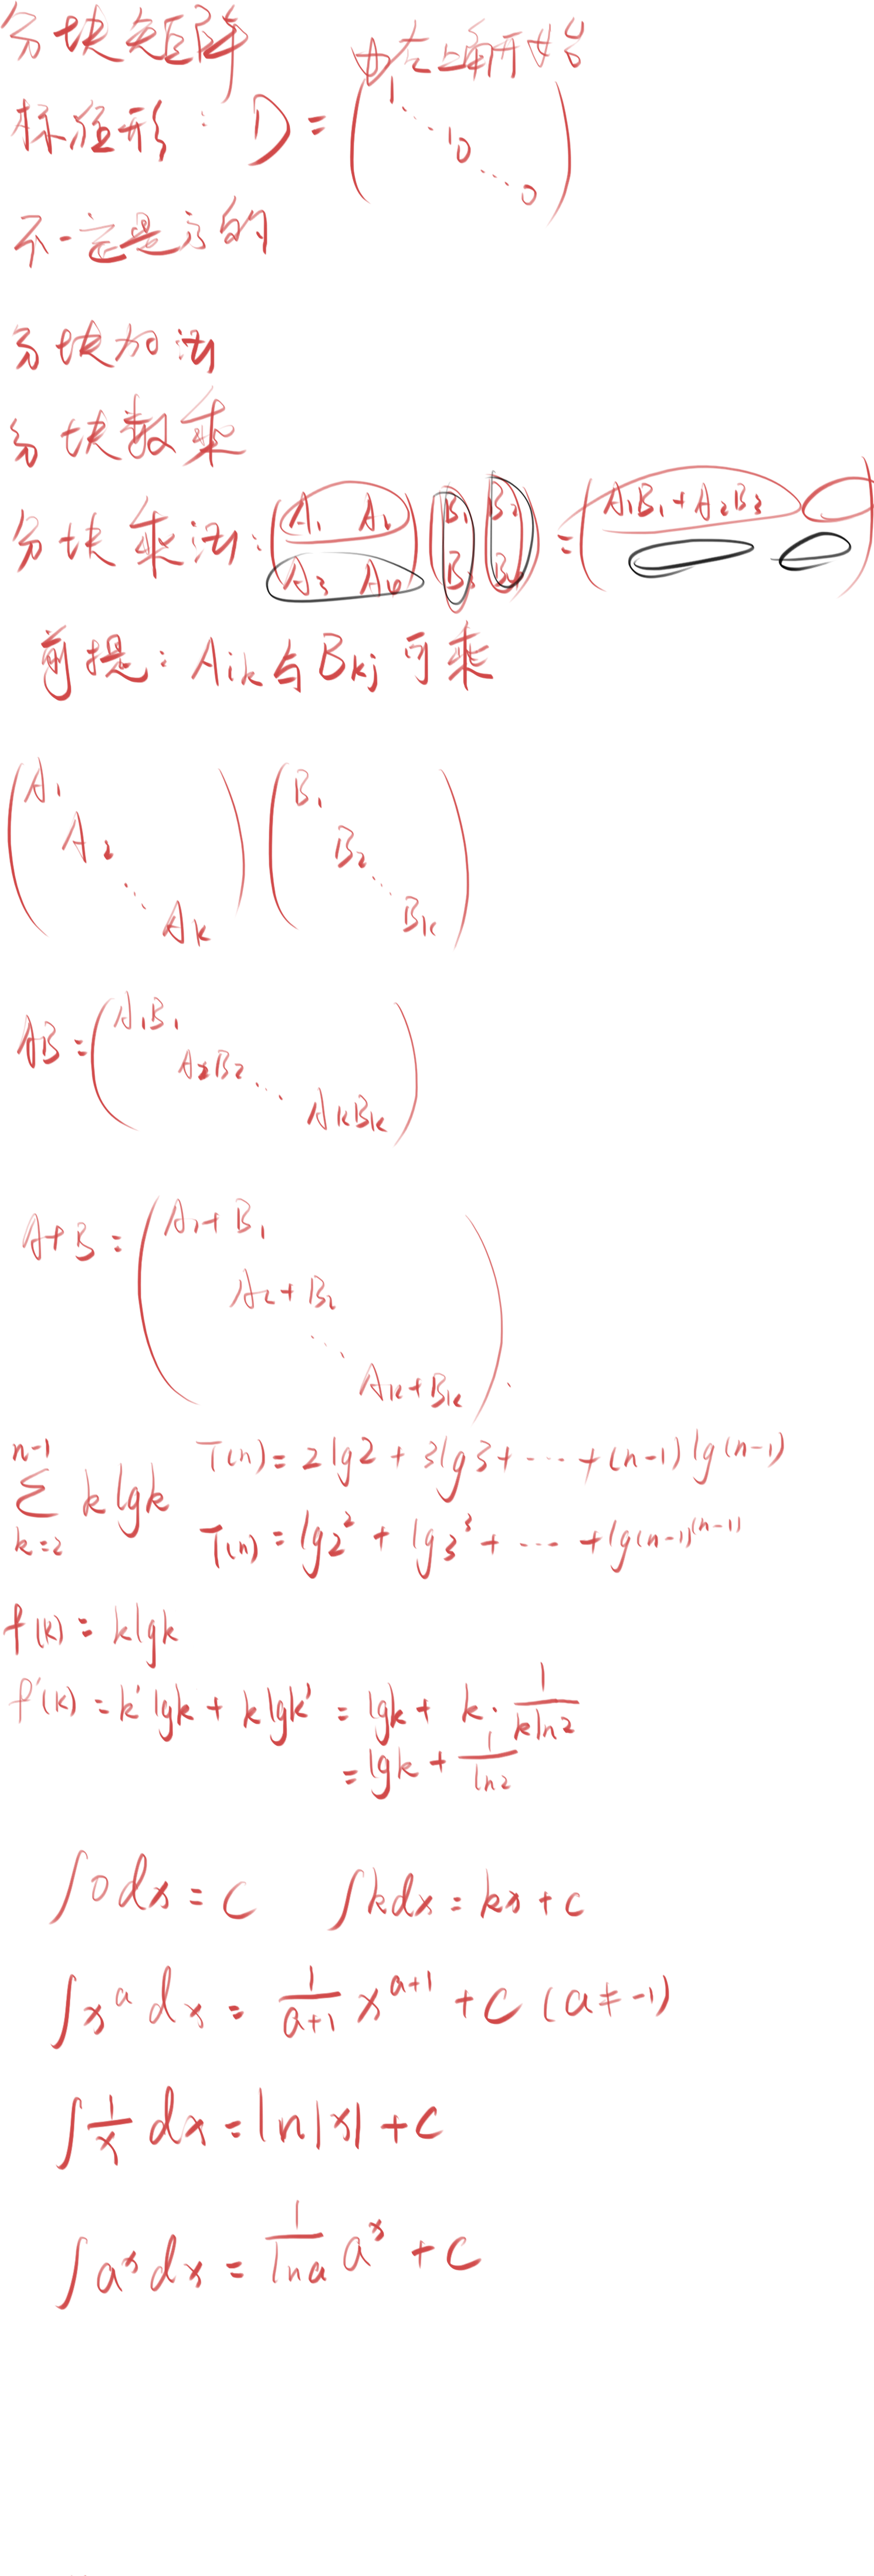 分块矩阵
由左上角开始
标准形: D = (1 ⋱ 1 0 ⋱ 0)
不一定是方的
分块加法
分块数乘
分块乘法: (A₁ A₂ / A₃ A₄) (B₁ B₂ / B₃ B₄) = (A₁B₁+A₂B₃)
前提: Aik 与 Bkj 可乘
(A₁ A₂ ⋱ Ak) (B₁ B₂ ⋱ Bk)
AB = (A₁B₁ A₂B₂ ⋱ AkBk)
A+B = (A₁+B₁ A₂+B₂ ⋱ Ak+Bk).
n-1 ∑ k=2 k lg k
T(n) = 2lg2 + 3lg3 + ⋯ + (n-1) lg(n-1)
T(n) = lg2² + lg3³ + ⋯ + lg(n-1)^(n-1)
f(k) = klgk
f'(k) = k'lgk + klgk' = lgk + k · 1/(kln2)
= lgk + 1/ln2
∫0dx = C ∫kdx = kx + C
∫x^a dx = 1/(a+1) x^(a+1) + C (a≠-1)
∫1/x dx = ln|x| + C
∫a^x dx = 1/lna a^x + C